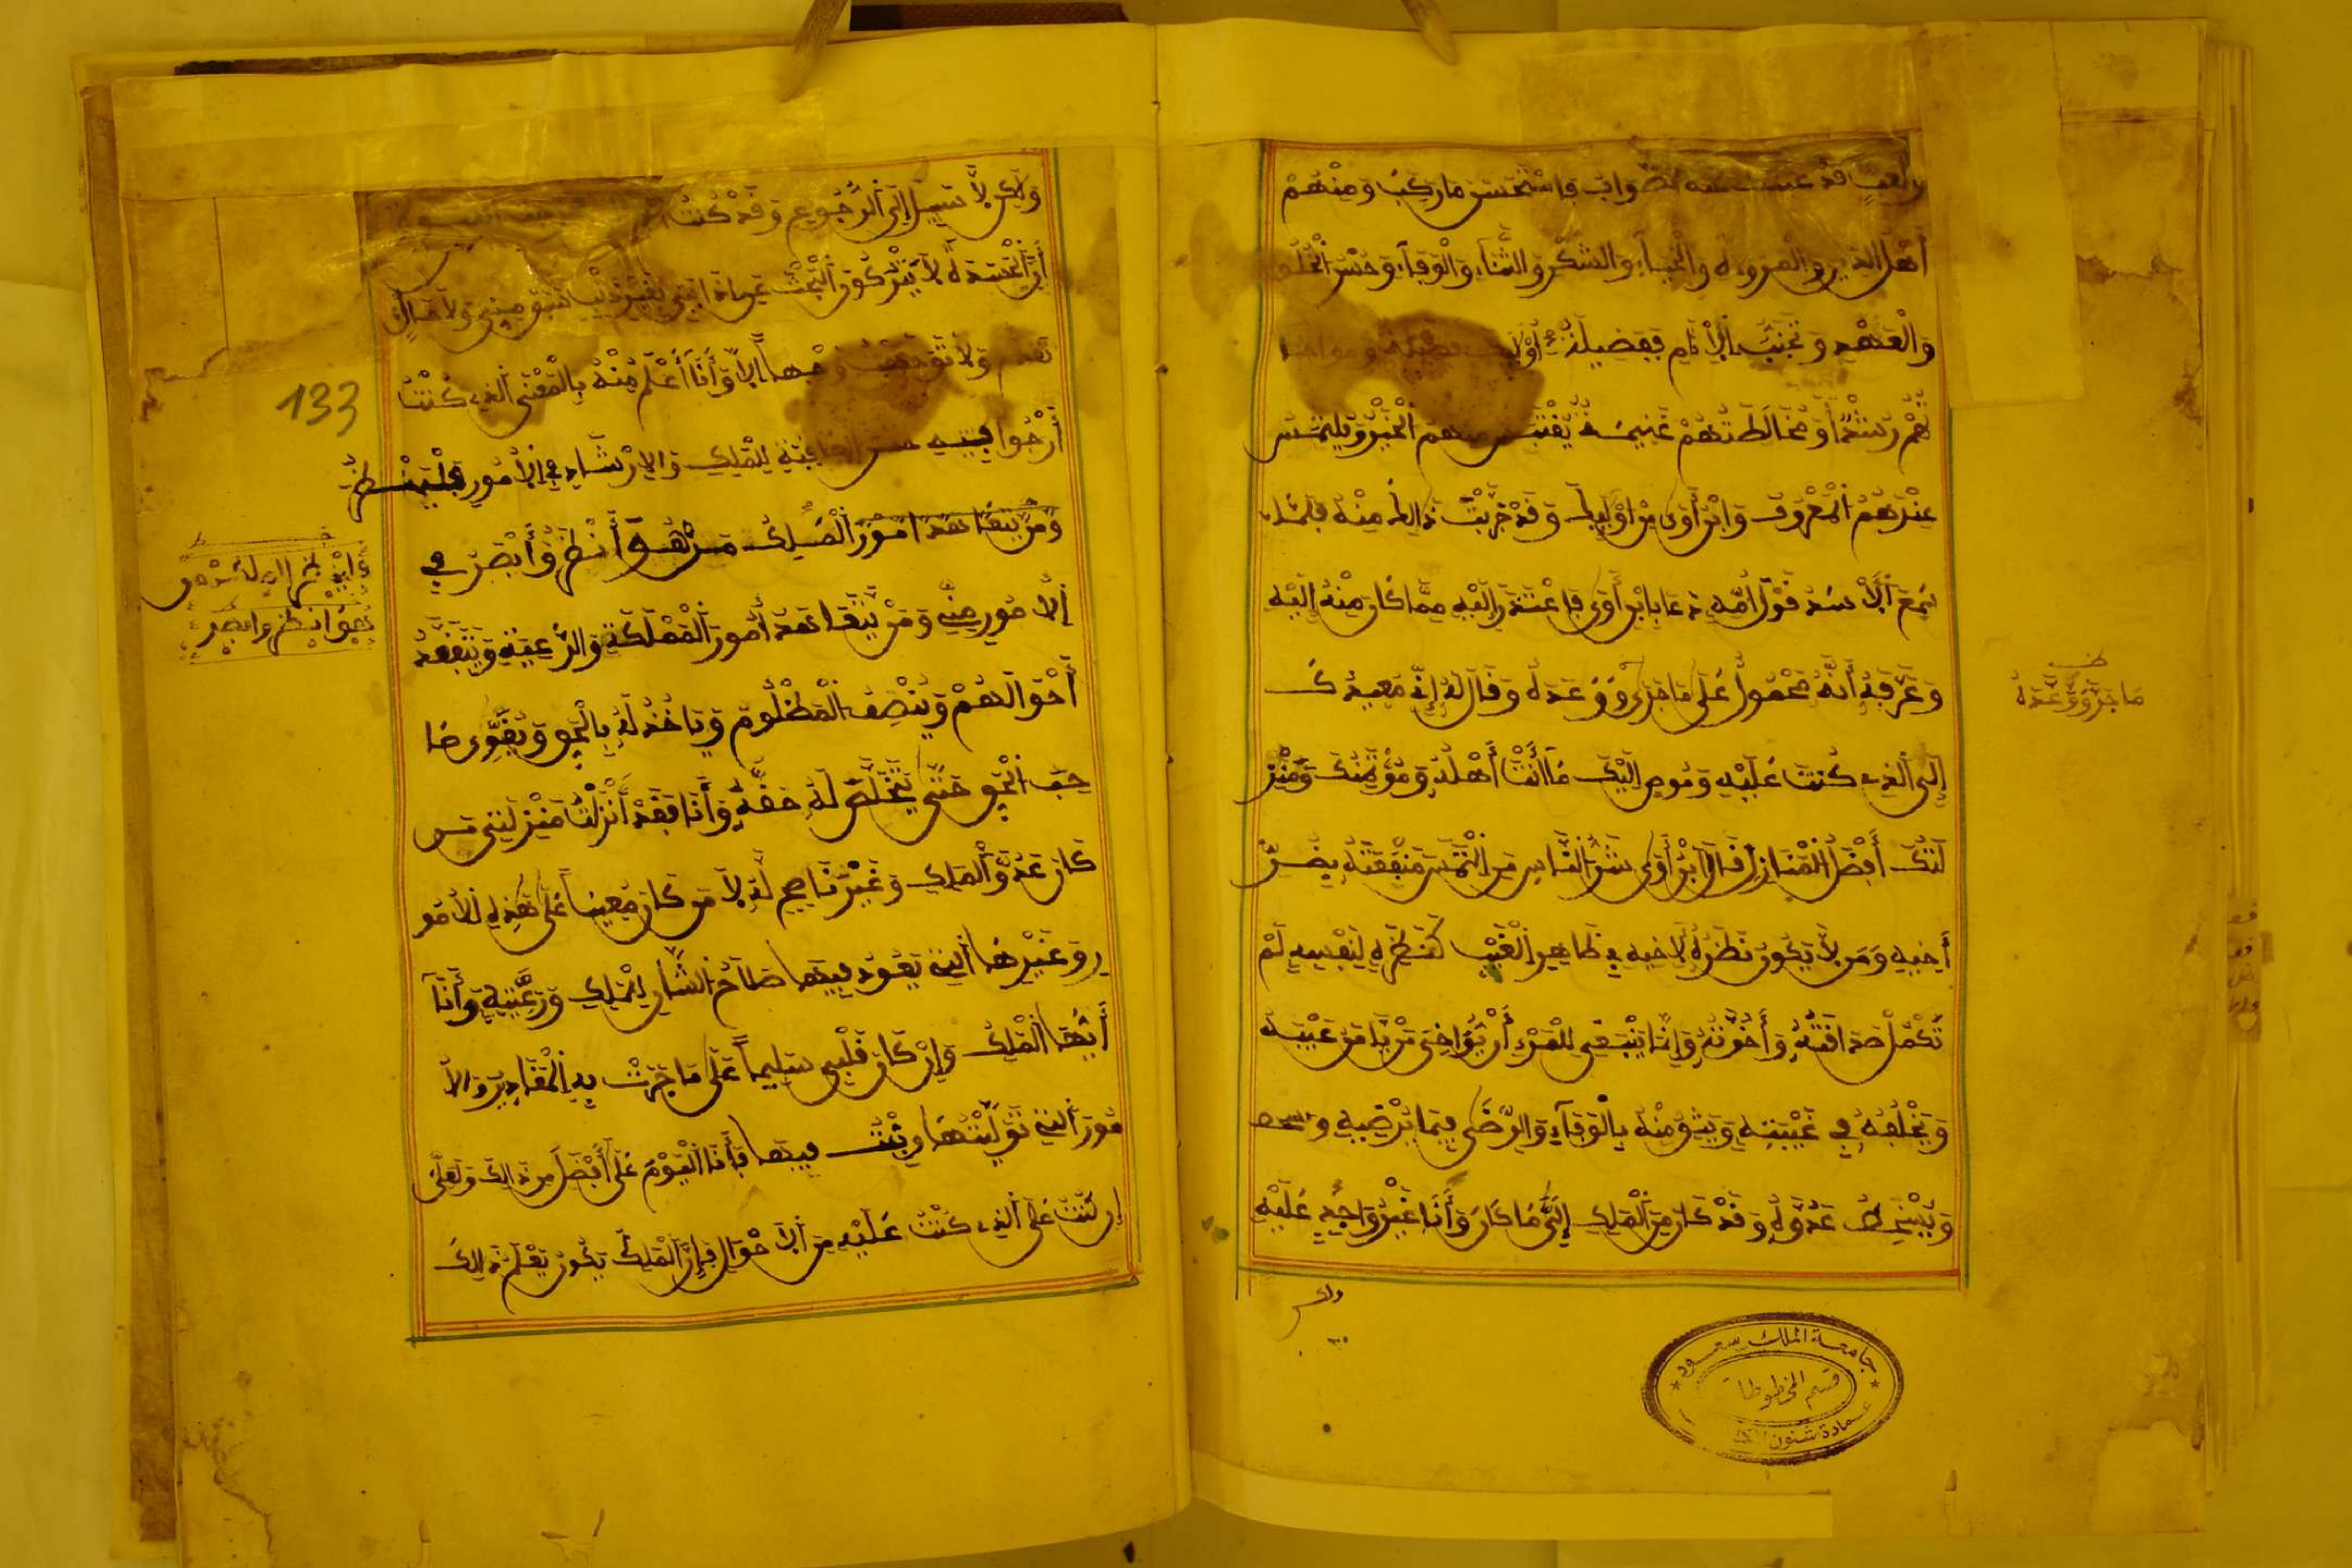 والعيب قد الصواب فاستحسن ما ركب ومنهم
أهل الدين والمروءة والحياء والشكر والثناء والوفاء وحسن الخلق
والعهد وتجنب الأثام ففضيلة أوليك
لهم رشدا ومخالطتهم غنيمة يقتبس منهم الخير ويلتمس
عندهم المعروف وابن أوى من أوليك وقد جربت ذالك منه فلما
سمع الأسد قول أمه دعا بابن أوى فاعتذر إليه مما كان منه اليه
وعرفه أنه محمول على ما جرى ووعده وقال له إني معيدك
إلى الذي كنت عليه ومفوض اليك ما أنت أهله ومؤتمنك ومنز
لتك أفضل المنازل فقال ابن أوى شر الناس من التمس منفعته بضر
أخيه ومن لا يكون نظره لأخيه في ظاهر الغيب كنظره لنفسه لم
تكمل صداقته وأخوته وإنما ينبغي للمرء أن يؤاخى من يامن غيبته
ويخلفه في غيبته ويثق منه بالوفاء والرضى فيما يرضيه و
ويسخط عدوه وقد كان من الملك إلي ما كان وأنا غير واجد عليه
ولاكن
ما جرى وعده
جامعة الملك سعود
قسم المخطوطات
عمادة شئون
ولاكن لا سبيل إلى الرجوع وقد كنت
أن الحسدة لا يتركون البحث عن أذايتي بغير ذنب سبق مني ولا
تقدم ولا وجها إلا وأنا أعلم منه بالمعنى الذي كنت
أرجوا فيه حسن العاقبة للملك والإرشاد في الأمور فلينظر
ومن يتقاعد امور الملك من هو أنظر وأبصر في
الأمور مني ومن يتقاعد أمور المملكة والرعية ويتفقد
أحوالهم وينصف المظلوم وياخذ له بالحق ويقوى صا
حب الحق حتى يتخلص له حقه وأنا فقد أنزلت منزلتي من
كان عدو الملك وغير ناصح له لا من كان معينا على هذه الأمو
ر وغيرها التي تعود فيها صلاح الشان للملك ورعيته وأنا
أيها الملك وإن كان قلبي سليما على ما جرت به المقادير والأ
مور التي توليتها وبنت فيها فأنا اليوم على أفضل من ذالك ولعلى
إن كنت على الذي كنت عليه من الأحوال فإن الملك يكون يعلم ذالك
133